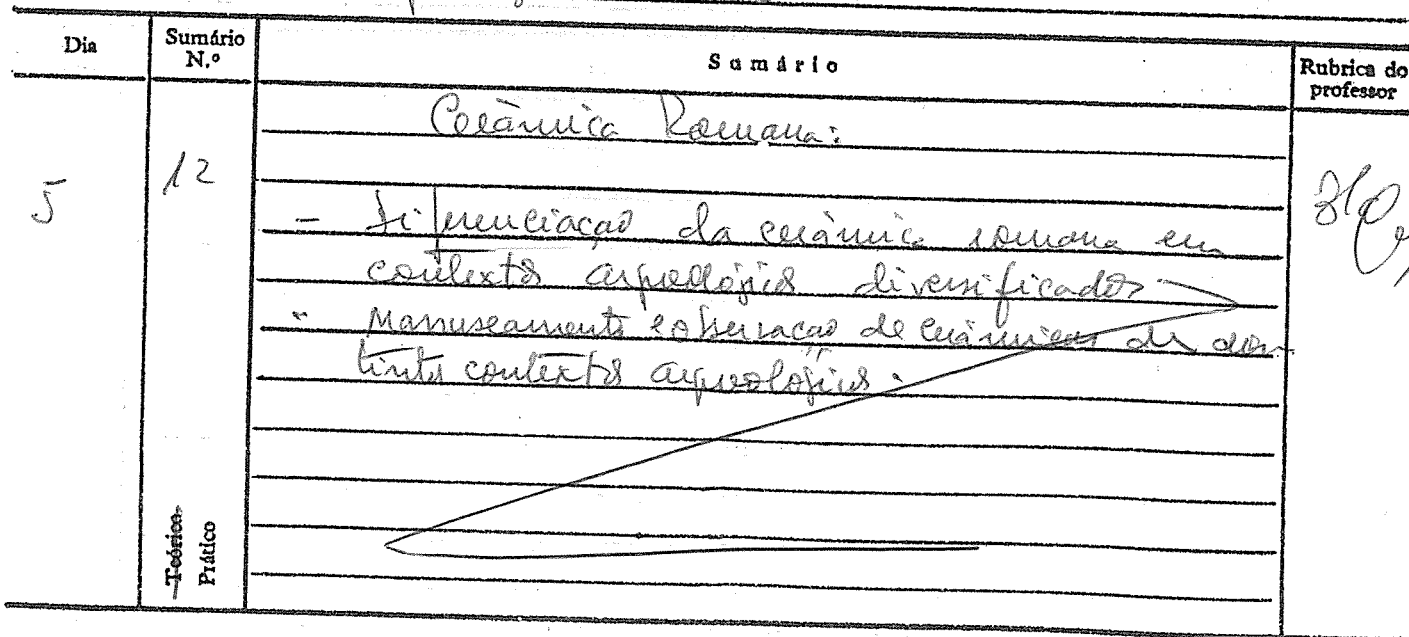 Dia
Sumário N.º
Sumário
Rubrica do professor
Cerâmica Romana:
5
12
- Diferenciação da cerâmica romana em
contextos arqueológicos diversificados
- Manuseamento e observação de cerâmicas de dis-
tintos contextos arqueológicos.
Teórico
Prático